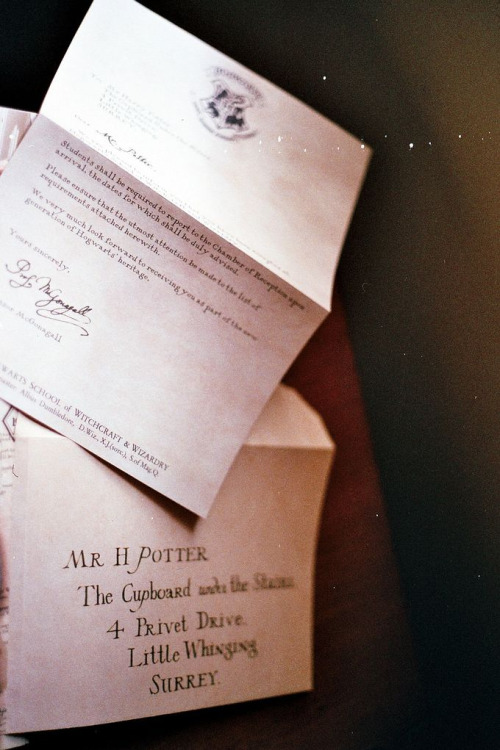 Mr Potter
Students shall be required to report to the Chamber of Reception upon
arrival, the dates for which shall be duly advised.
Please ensure that the utmost attention be made to the list of
requirements attached herewith.
We very much look forward to receiving you as part of the new
generation of Hogwarts' heritage.
Yours sincerely,
Prof. McGonagall
McGonagall
SCHOOL of WITCHCRAFT & WIZARDRY
Albus Dumbledore, D.Wiz., X.J.(sorc.), S.of Mag.Q.
MR H POTTER
The Cupboard under the Stairs,
4 Privet Drive,
Little Whinging,
SURREY.